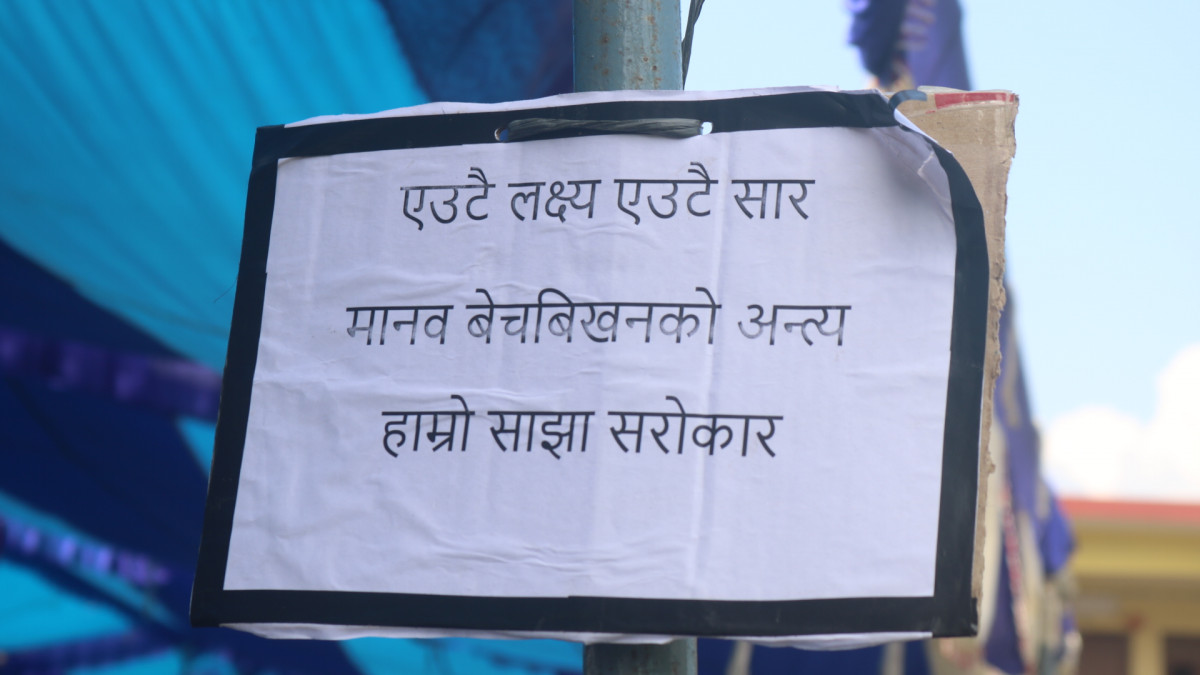 एउटै लक्ष्य एउटै सार
मानव बेचबिखनको अन्त्य
हाम्रो साझा सरोकार